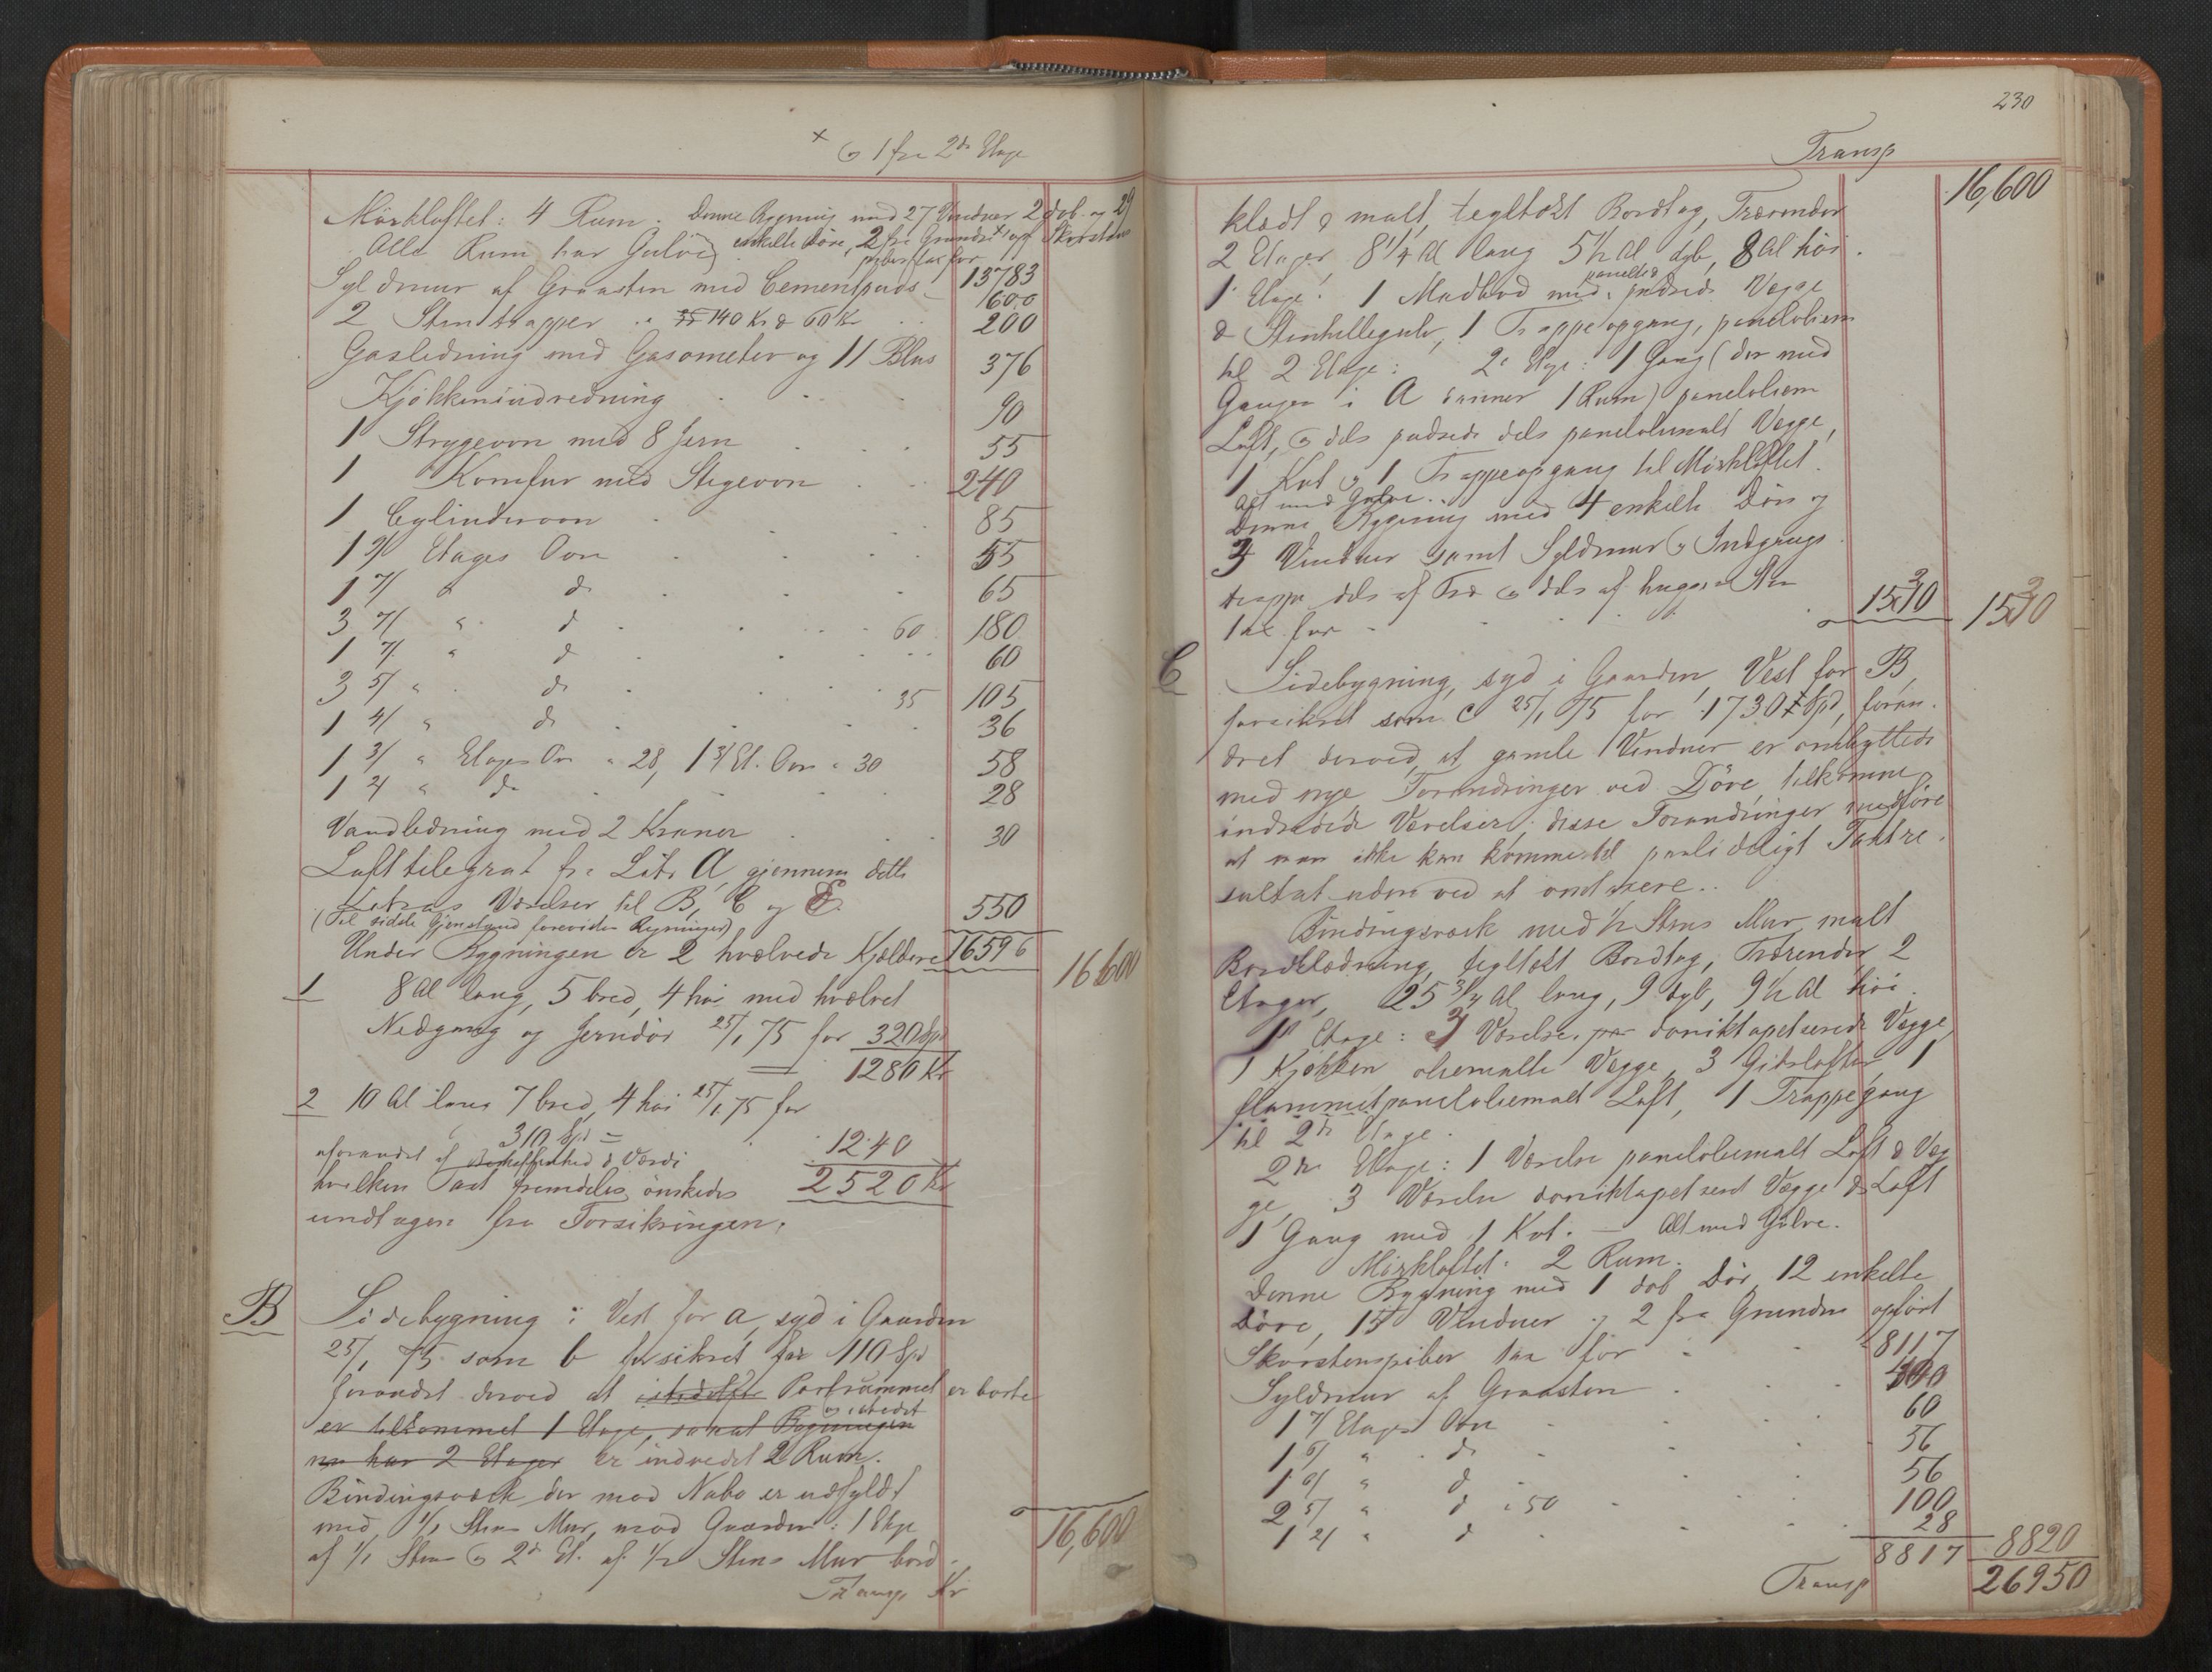 × & 1 fra 2de Etage
Mörkloftet: 4 Rum. Denne Bygning med 27 Vinduer 2 dob. og 29
Alle Rum har Gulve, enkelte Döre, 2 fra Grunden × opf Skorstens
piber tax for
Syldmur af Graasten med Cementpuds 13783
600
2 Stentrapper a 140 Kr & 60 Kr 200
Gasledning med Gasometer og 11 Blus 376
Kjökkenindredning 90
1 Strygeovn med 8 Jern 55
1 Komfur med Stegeovn 240
1 Cylinderovn 85
1 9/ Etages Ovn 55
1 7/ " do 65
3 7/ " do 60 180
1 7/ " do 60
3 5/ " do 35 105
1 4/ " do 36
1 3/ " Etages Ovn a 28, 1 3/ Et. Ovn a 30 58
1 2/ " do 28
Vandledning med 2 Kraner 30
Lufttelegraf fra Litr A gjennem dette
Litras Værelser til B, C og E. 550
(Til sidste Gjenstand forevistes Regninger)
Under Bygningen er 2 hvælvede Kjældere 16596
16600
1 8 Al lang, 5 bred, 4 höi med hvælvet
Nedgang og Jerndör 25/1 75 for 320 Spd
1280 Kr
2 10 Al lang 7 bred, 4 höi 25/1 75 for
310 Spd = 1240
uforandret af Beskaffenhed & Værdi
hvilken Taxt fremdeles önskedes 2520 Kr
undtagen fra Forsikringen.
B Sidebygning i Vest for A, syd i Gaarden
25/1 75 som b forsikret for 110 Spd
forandret derved at Portrummet er borte
og istedet
er tilkommet 1 Etage, saa at Bygningen
nu har 2 Etager er indredet 2 Rum.
Bindingsværk der mod Nabo er udfyldt
med 1/1 Stens Mur, mod Gaarden i 1 Etage
af 1/1 Sten & 2den Et. af 1/2 Stens Mur bord-
16,600
Transp Kr
230
Transp
16,600
klædt & malt, tegltækt Bordtag, Trærender
2 Etager 8 1/4 Al lang 5 1/2 Al dyb, 8 Al höi.
panelede
1 Etage: 1 Madbod med pudsede Vægge
& Stenhellegulv, 1 Trappeopgang, paneloliem
til 2 Etage: 2de Etage: 1 Gang (der med
Gangen i A danner 1 Rum) paneloliem
Loft, & dels pudsede dels paneloliemalt Vægge,
1 Kot & 1 Trappeopgang til Mörkloftet.
Alt med Gulve.
Denne Bygning med 4 enkelte Döre og
3 Vinduer samt Syldmur & Indgangs
trappe dels af Træ & dels af huggen Sten
tax for 1530 1530
C Sidebygning, syd i Gaarden Vest for B,
forsikret som C 25/1 75 for 1730 Spd, foran-
dret derved at gamle Vinduer er ombyttede
med nye Forandringer ved Döre, tilkomne
indredede Værelser; disse Forandringer medföre
at man ikke kan komme til paalideligt Taxtre-
sultat uden ved at omtaxere.
Bindingsværk med 1/2 Stens Mur, malt
Bordklædning, tegltækt Bordtag, Trærender 2
Etager, 25 3/4 Al lang, 9 dyb, 9 1/2 Al höi.
1 Etage: 3 Værelser doniktapetserede Vægge,
1 Kjökken oliemalte Vægge, 3 Gibslofter, 1
flammet paneloliemalt Loft, 1 Trappegang
til 2de Etage.
2de Etage: 1 Værelse paneloliemalt Loft & Væg
ge, 3 Værelser doniktapetseret Vægge & Loft
1 Gang med 1 Kot. — Alt med Gulve.
Mörkloftet: 2 Rum.
Denne Bygning med 1 dob Dör, 12 enkelte
Döre, 15 Vinduer og 2 fra Grunden opfört
Skorstenspiber tax for 8117
Syldmur af Graasten 400
1 7/ Etages Ovn 60
1 6/ " do 56
1 6/ " do 56
2 5/ " do a 50 100
1 2/ " do 28
8817 8820
Transp 26950